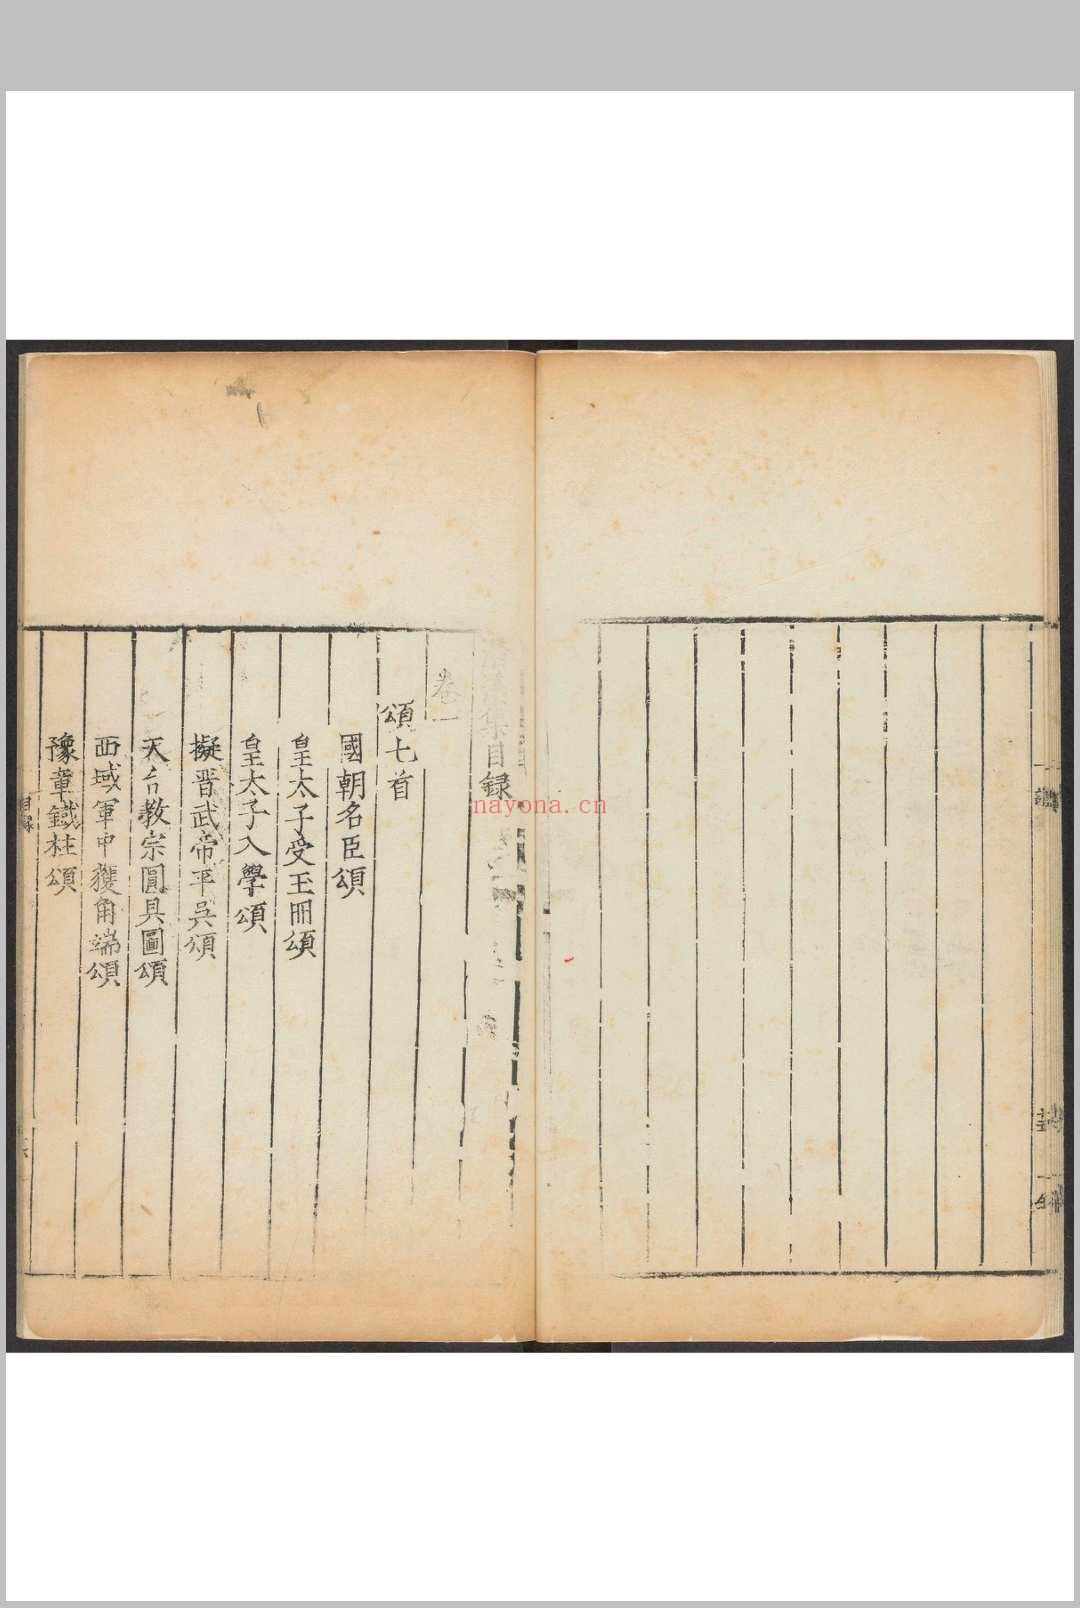 集目錄
卷一
頌七首
國朝名臣頌
皇太子受玉冊頌
皇太子入學頌
擬晉武帝平吳頌
天台教宗圓具圖頌
西域軍中獲角端頌
豫章鐵柱頌
目錄
nayona.cn